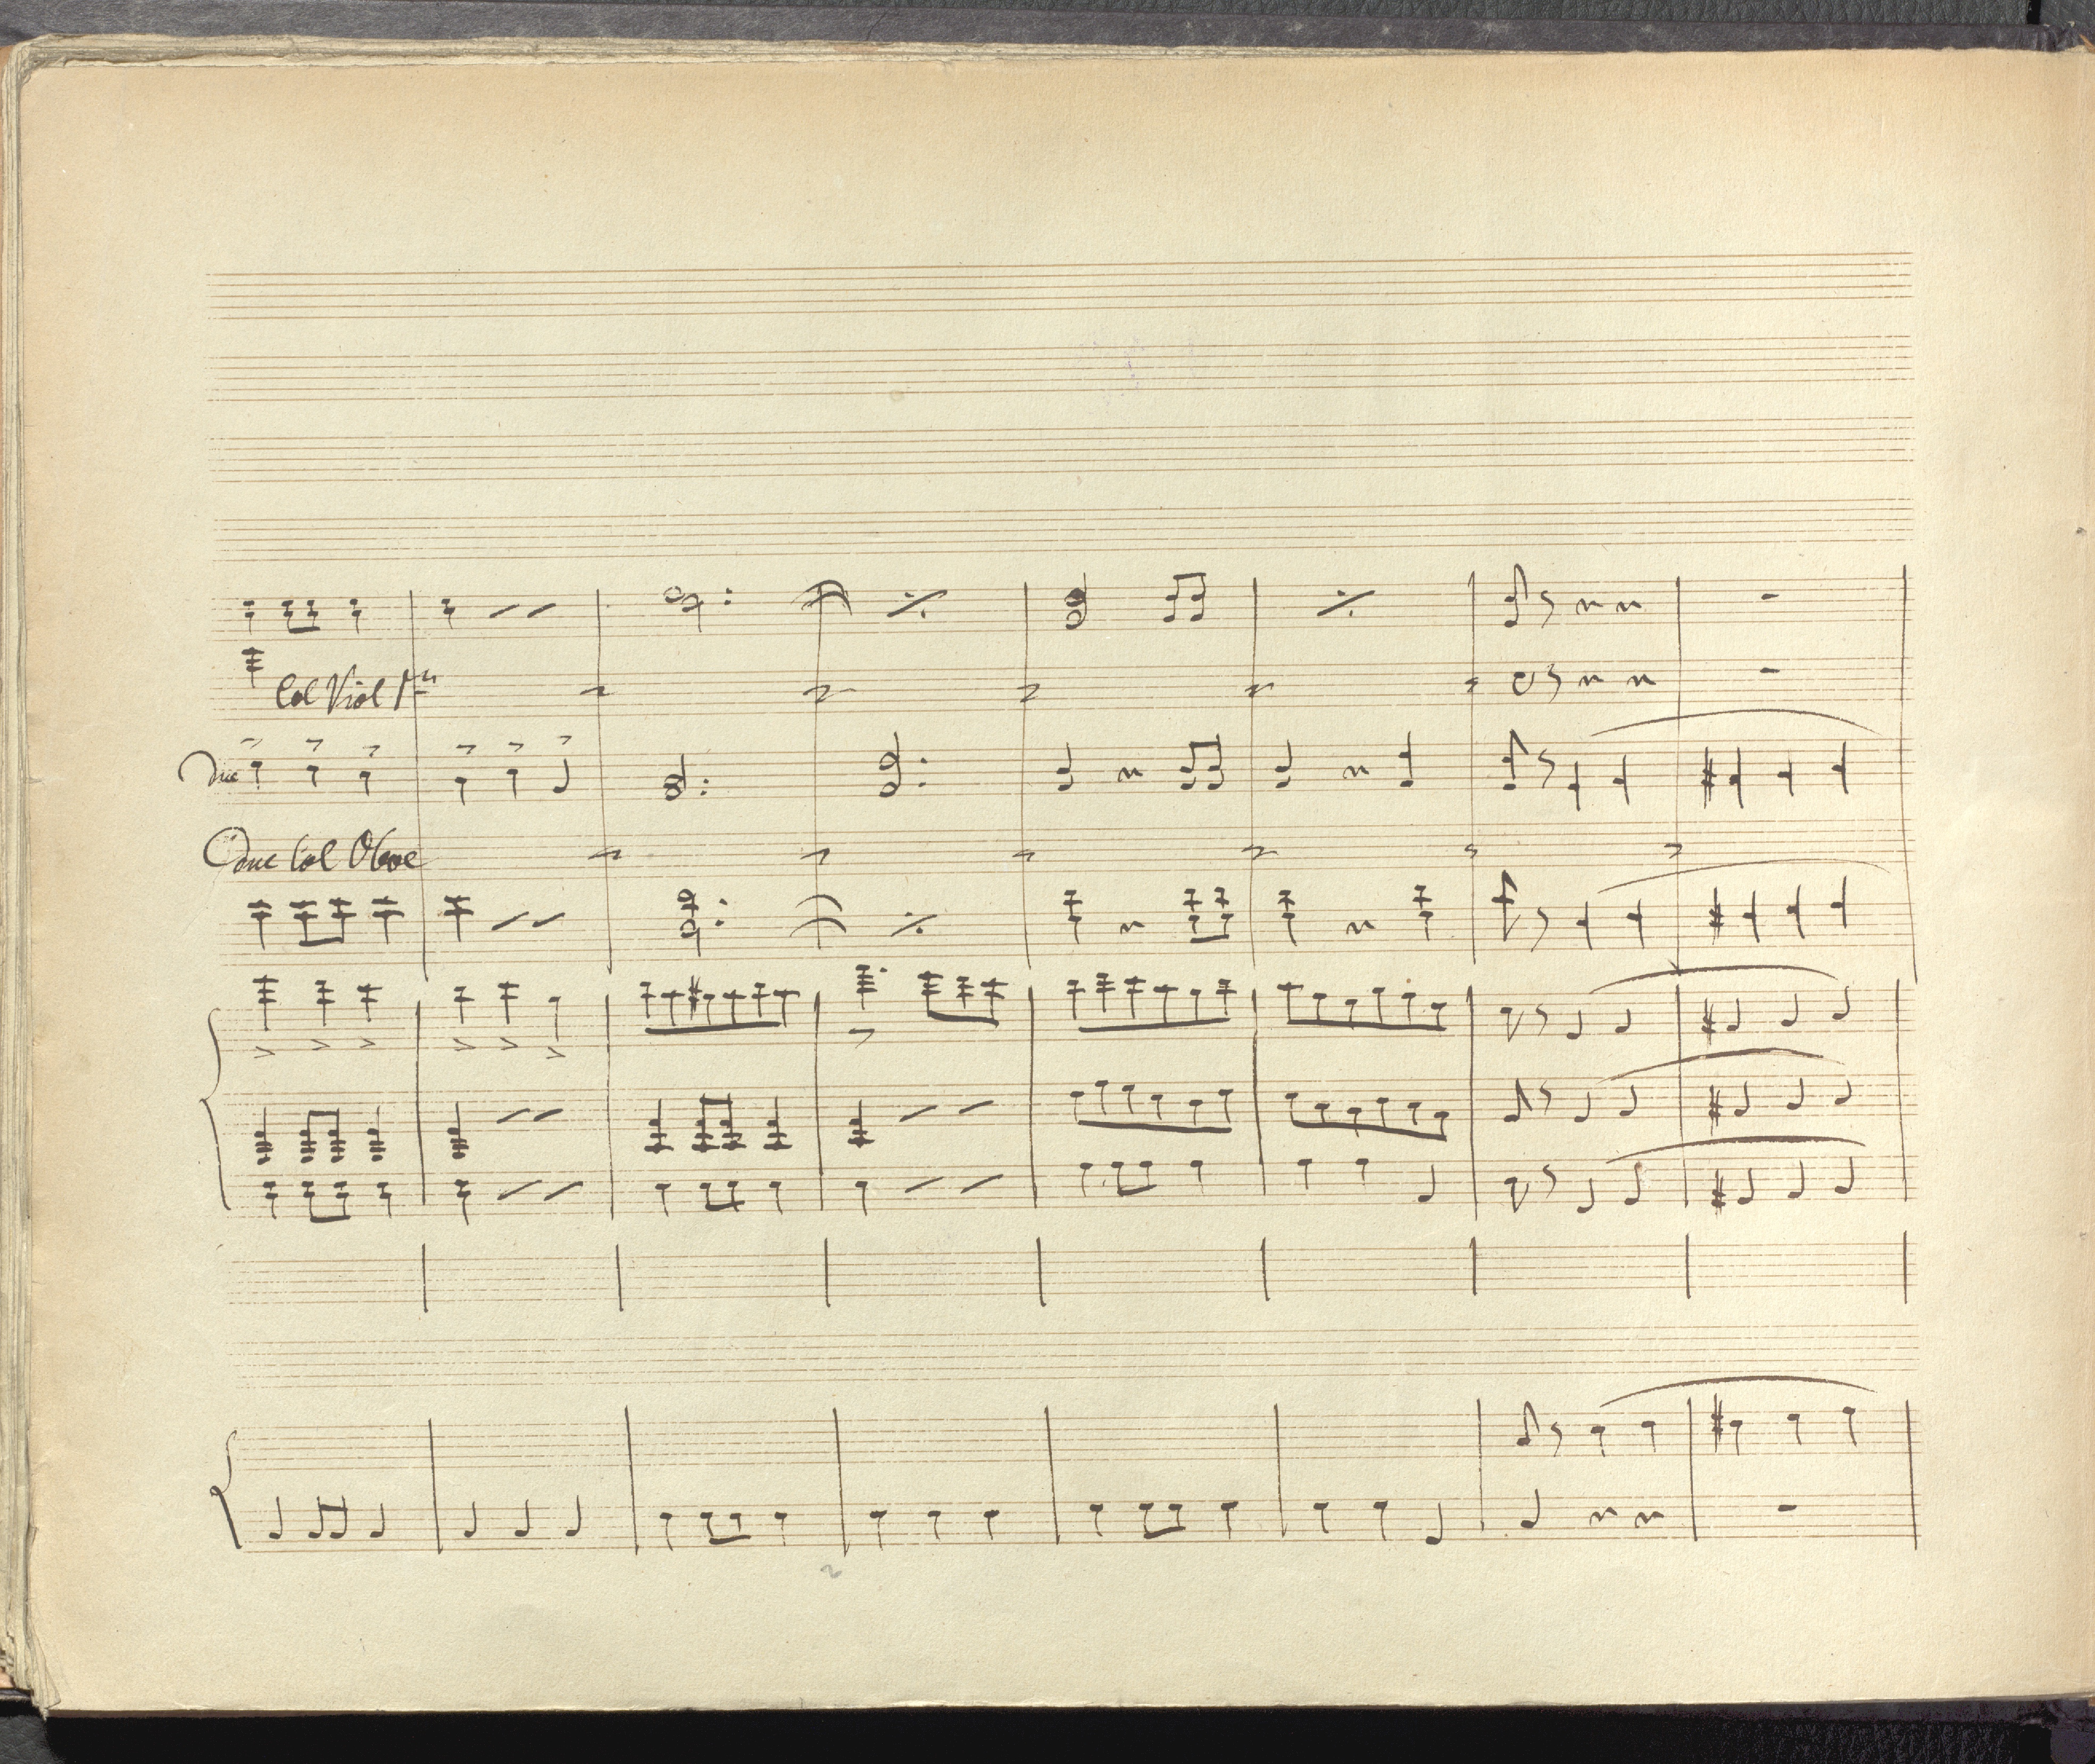 Col Viol 1mo
due
due Col Oboe